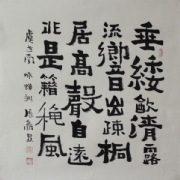 垂緌飲清露
流響出疏桐
居高聲自遠
非是籍秋風
虞世南